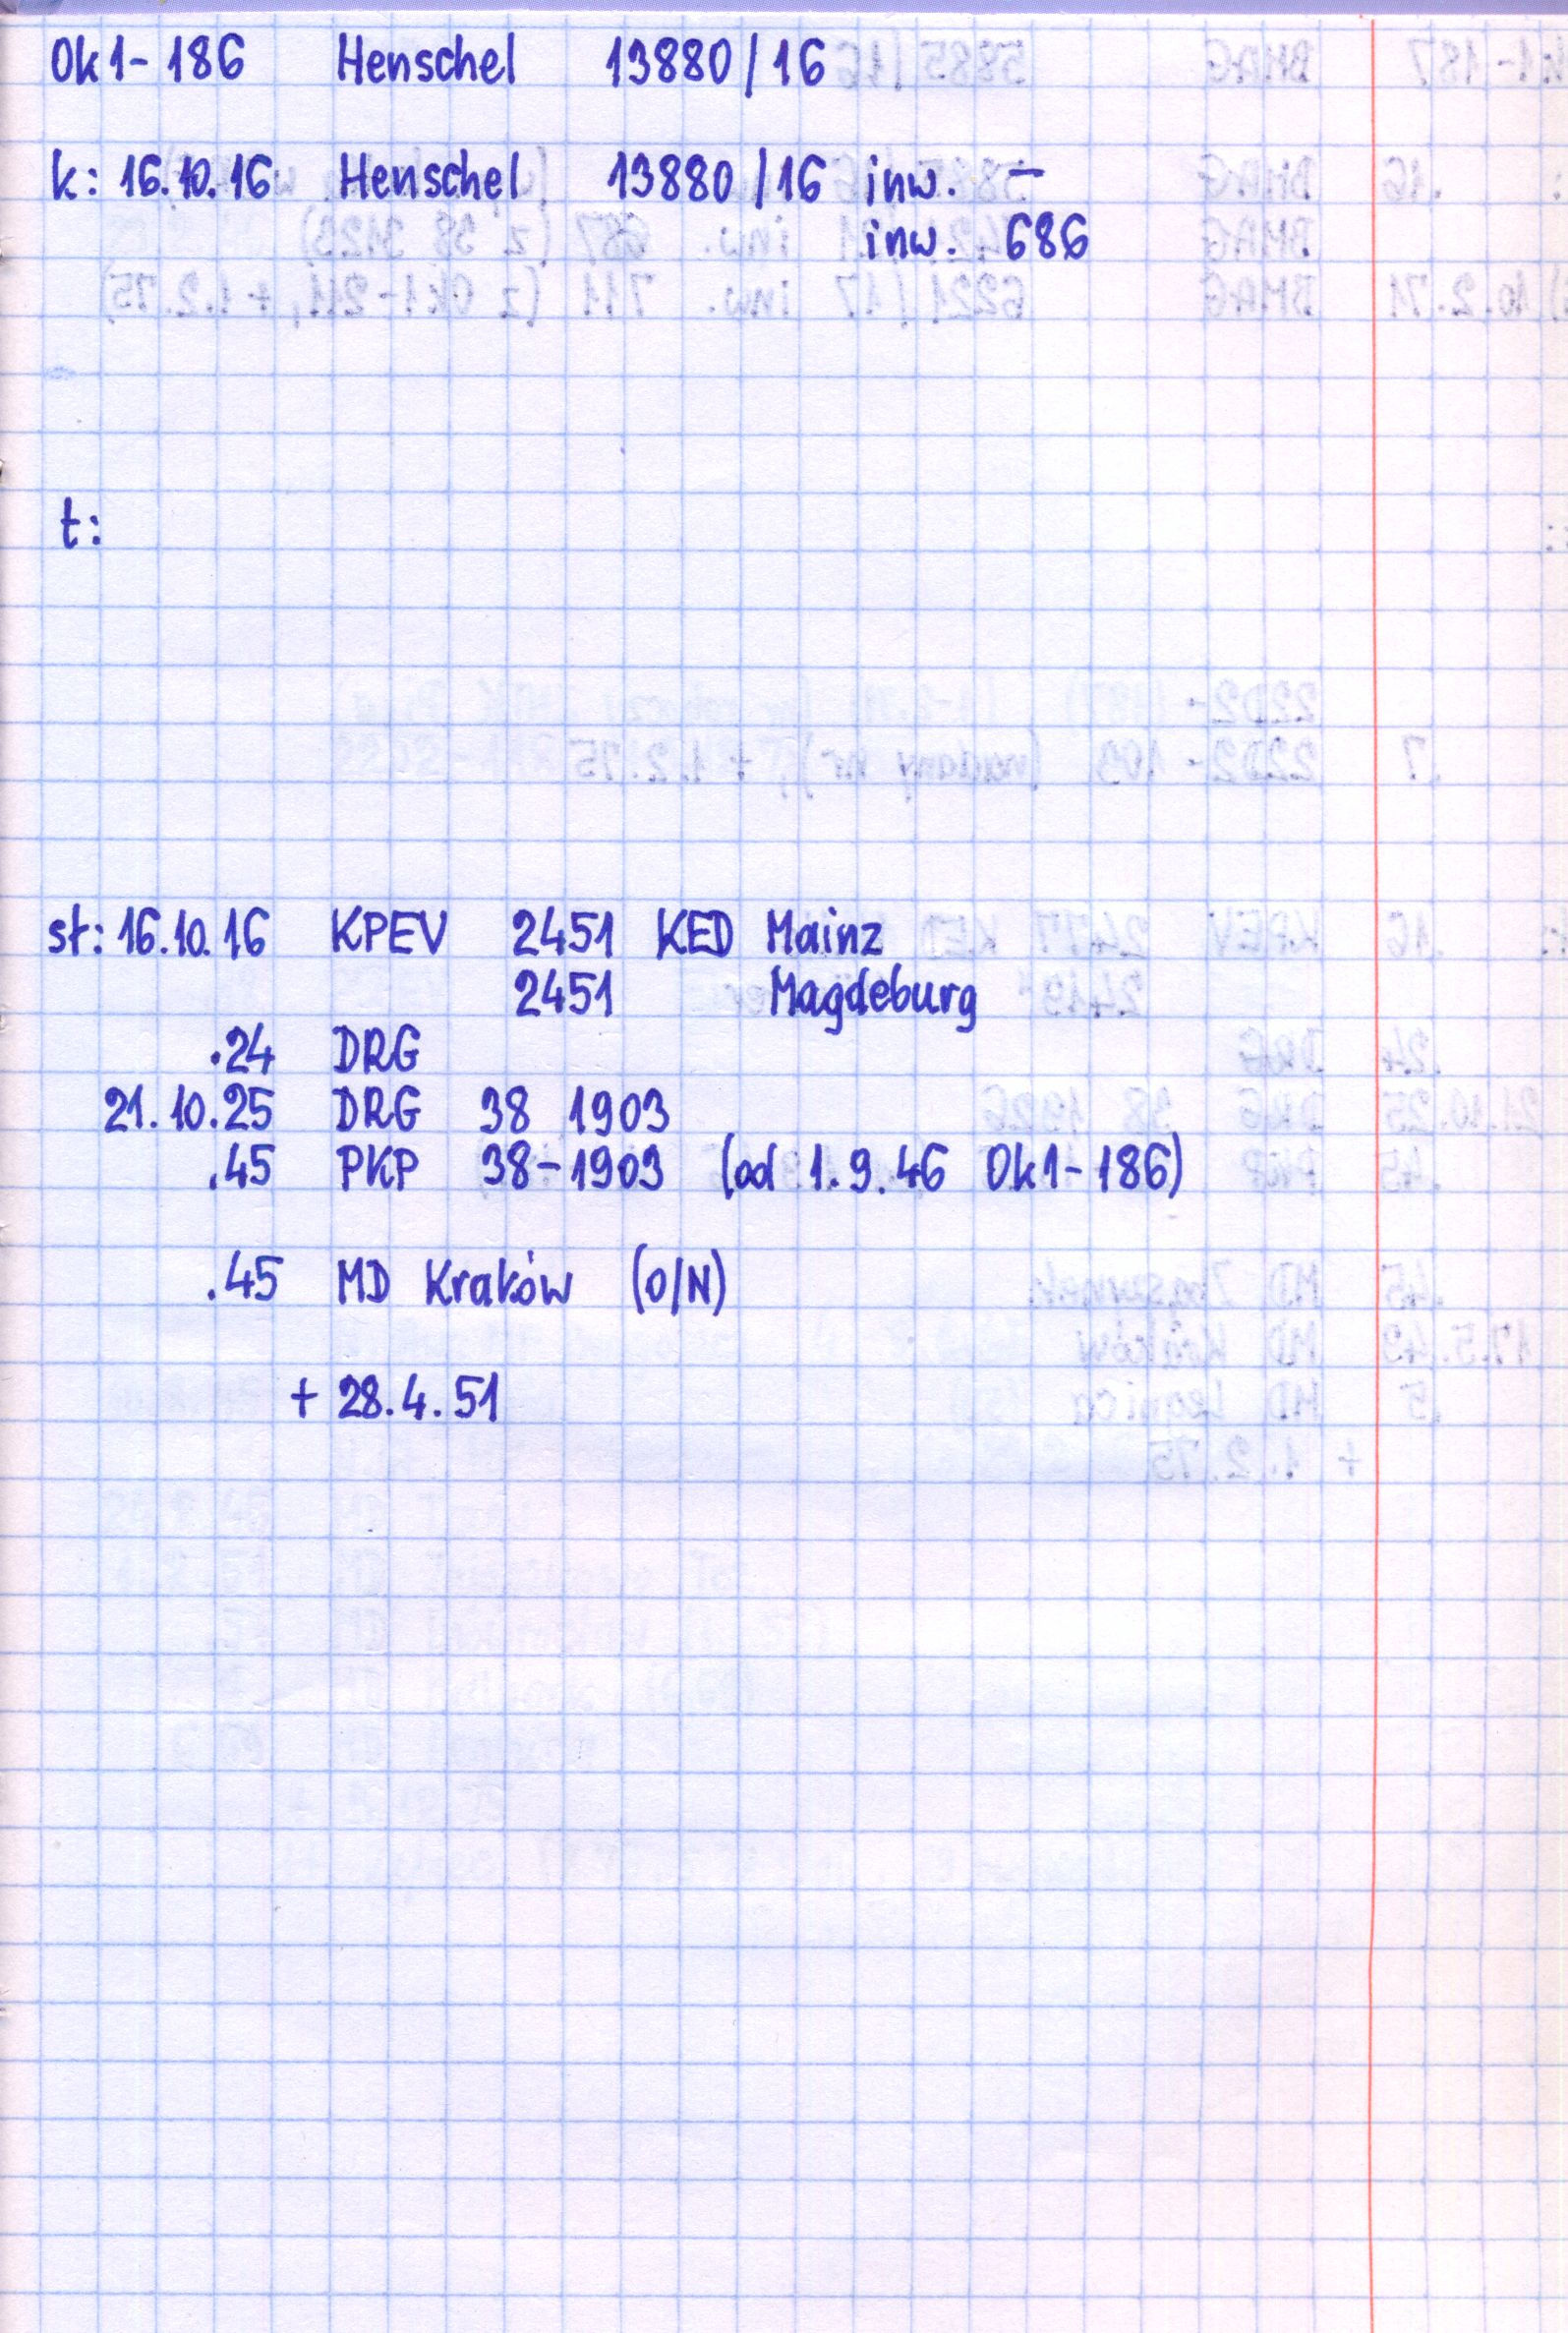 Ok1-186 Henschel 13880/16
k: 16.10.16 Henschel 13880/16 inw. -
inw. 686
t:
st: 16.10.16 KPEV 2451 KED Mainz
2451 Magdeburg
.24 DRG
21.10.25 DRG 38 1903
.45 PKP 38-1903 (od 1.9.46 Ok1-186)
.45 MD Kraków (O/N)
+ 28.4.51